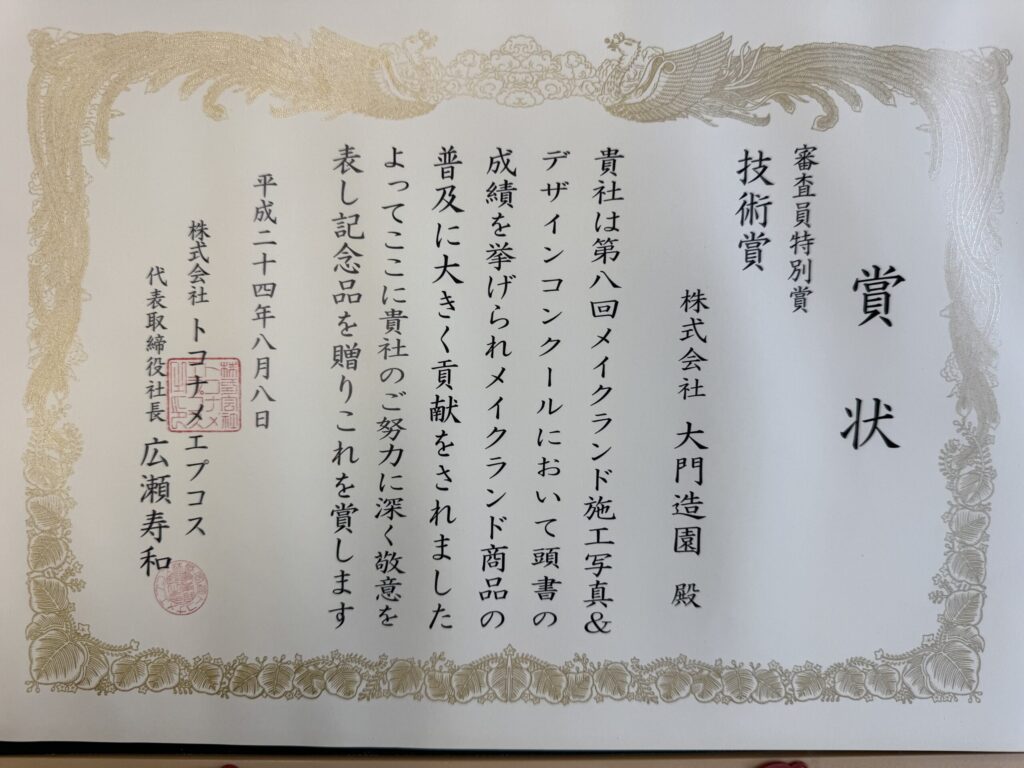 賞状
審査員特別賞
技術賞
株式会社 大門造園 殿
貴社は第八回メイクランド施工写真&
デザインコンクールにおいて頭書の
成績を挙げられメイクランド商品の
普及に大きく貢献をされました
よってここに貴社のご努力に深く敬意を
表し記念品を贈りこれを賞します
平成二十四年八月八日
株式会社 トコナメエプコス
代表取締役社長 広瀬寿和